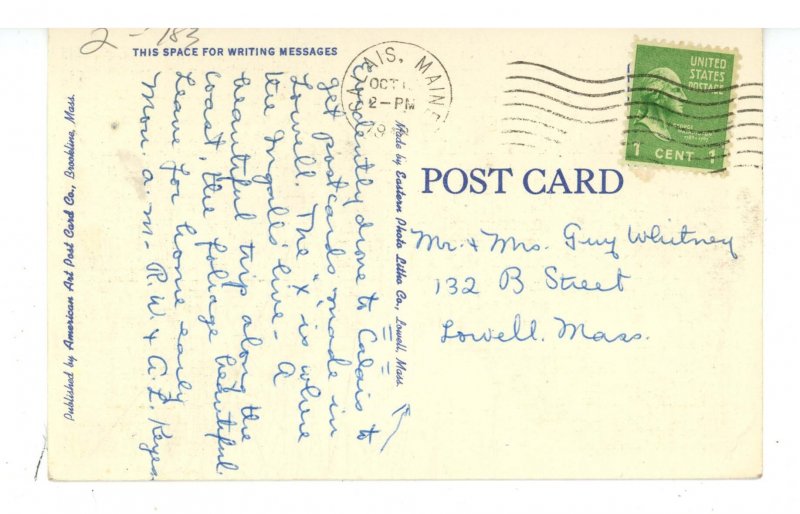 2 - 183
THIS SPACE FOR WRITING MESSAGES
Evidently drove to Calais to
get postcards made in
Lowell. The "x is where
the Ingalls live - A
beautiful trip along the
coast, the foliage beautiful.
Leave for home early
Mon. a.m - R.W & A.L. Keyes
Published by American Art Post Card Co., Brookline, Mass.
Made by Eastern Photo Litho Co., Lowell, Mass.
CALAIS, MAINE
OCT
2-PM
19
UNITED
STATES
POSTAGE
GEORGE
WASHINGTON
1 CENT 1
POST CARD
Mr. & Mrs. Guy Whitney
132 B Street
Lowell, Mass.